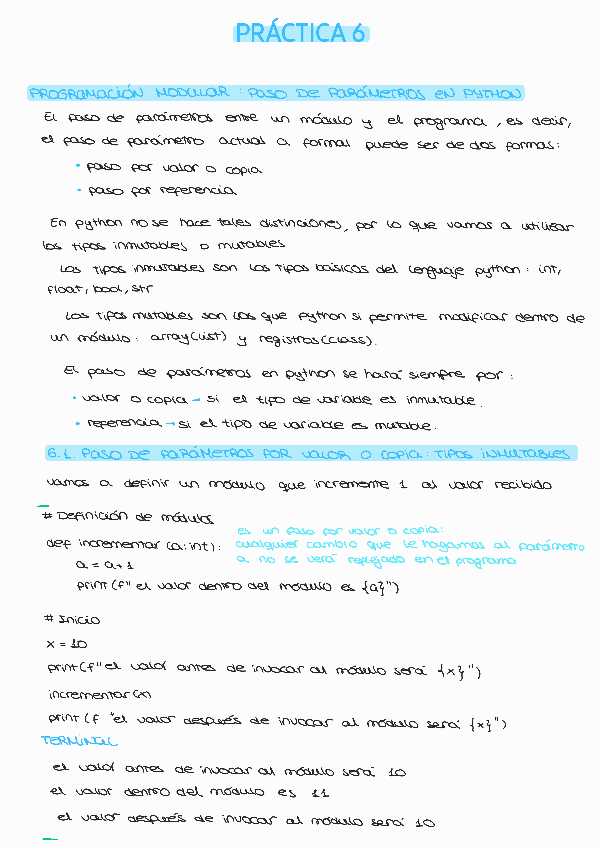 PRÁCTICA 6
PROGRAMACIÓN MODULAR : PASO DE PARÁMETROS EN PYTHON
El paso de parámetros entre un módulo y el programa, es decir,
el paso de parámetro actual a formal puede ser de dos formas:
• paso por valor o copia
• paso por referencia
En python no se hace tales distinciones, por lo que vamos a utilizar
los tipos inmutables o mutables
Los tipos inmutables son los tipos básicos del lenguaje python: int,
float, bool, str
Los tipos mutables son los que Python si permite modificar dentro de
un módulo: array(list) y registros(class).
El paso de parámetros en python se hará siempre por:
• valor o copia → si el tipo de variable es inmutable.
• referencia → si el tipo de variable es mutable.
6.1. PASO DE PARÁMETROS POR VALOR O COPIA: TIPOS INMUTABLES
vamos a definir un módulo que incremente 1 al valor recibido
# Definición de módulos
es un paso por valor o copia:
def incrementar (a:int): cualquier cambio que le hagamos al parámetro
a = a+1 a no se verá reflejado en el programa
print (f" el valor dentro del módulo es {a}")
# Inicio
x = 10
print(f"el valor antes de invocar al módulo será {x}")
incrementar(x)
print (f "el valor después de invocar al módulo será {x}")
TERMINAL
el valor antes de invocar al módulo será 10
el valor dentro del módulo es 11
el valor después de invocar al módulo será 10